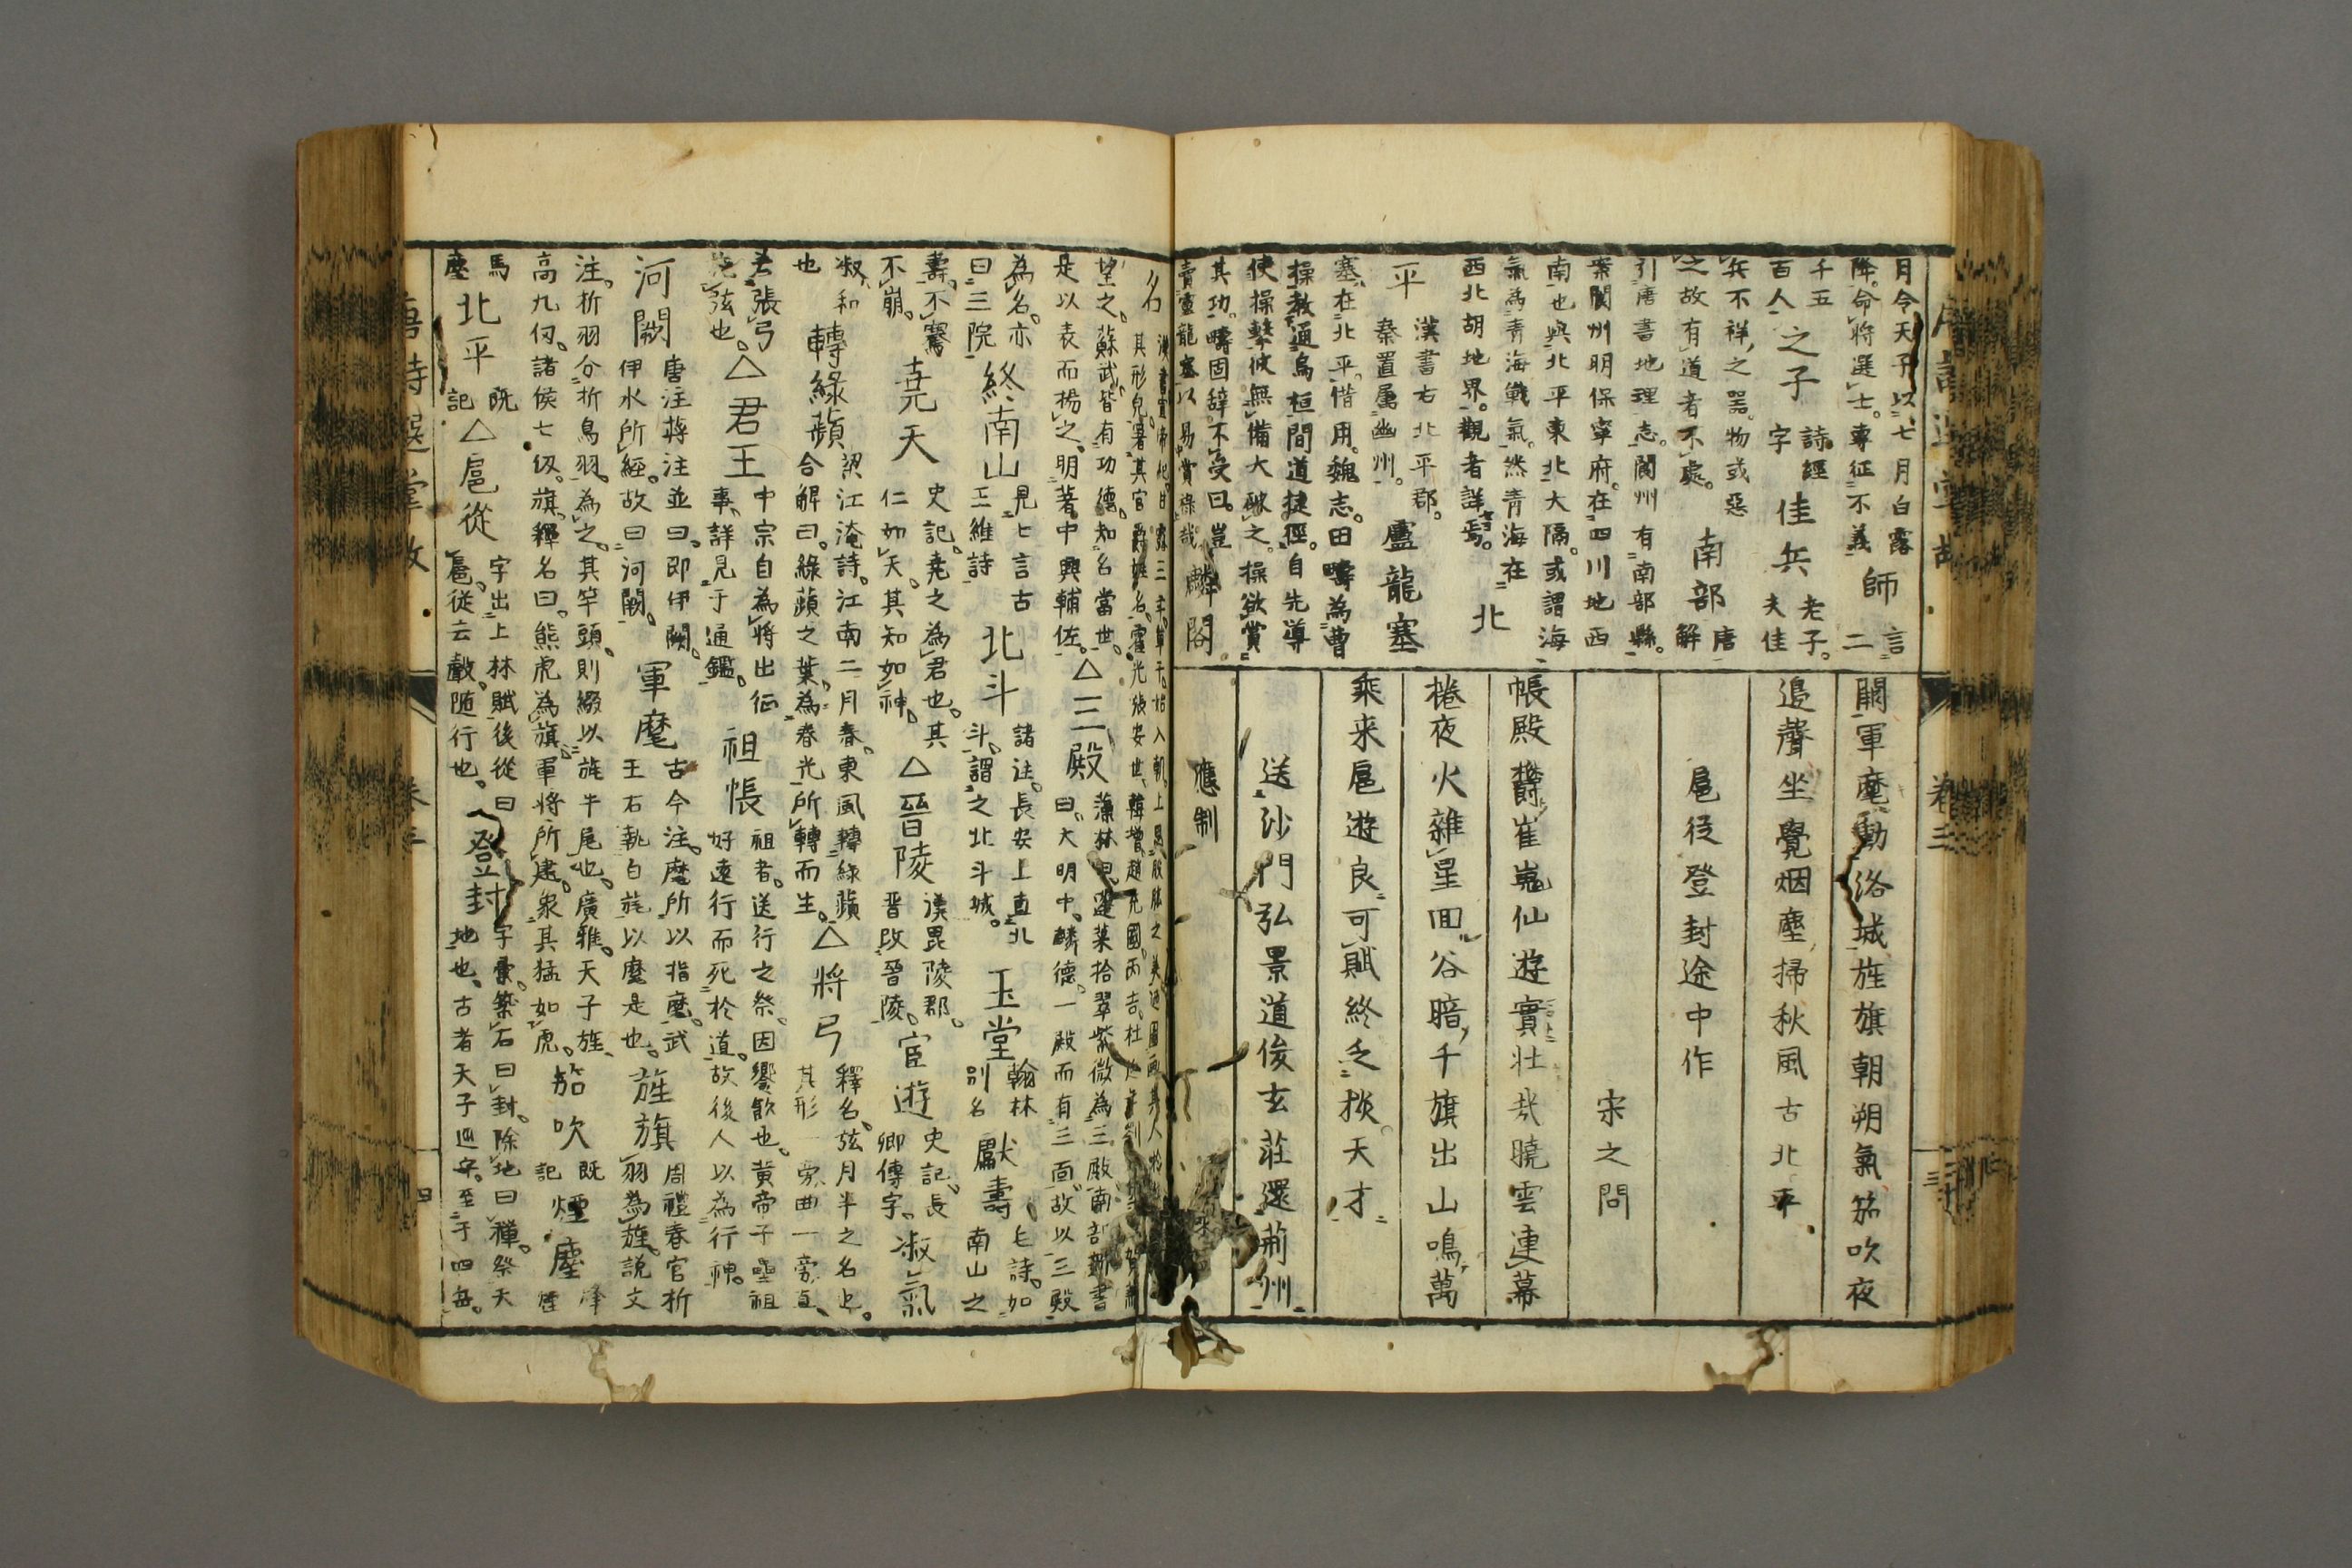 月令天子以七月白露
降命將選士專征不義
師
言二
千五
百人
之子
詩經
字
佳兵
老子
夫佳
兵不祥之器物或惡
之故有道者不處
南部
唐
解
引唐書地理志閬州有南部縣
案閬州明保寧府在四川地西
南也與北平東北大隔或謂海
氣為青海戰氣然青海在
西北胡地界觀者詳焉
北
平
漢書右北平郡
秦置屬幽州
盧龍塞
塞在北平借用魏志田疇為曹
操教通烏桓間道捷徑自先導
使操擊彼無備大破之操欲賞
其功疇固辭不受曰豈
賣盧龍塞以易賞祿哉
麟閣
關軍麾動洛城旌旗朝朔氣笳吹夜
邊聲坐覺烟塵掃秋風古北平
扈從登封途中作
宋之問
帳殿欝崔嵬仙遊實壯哉曉雲連幕
捲夜火雜星回谷暗千旗出山鳴萬
乘来扈遊良可賦終乏掞天才
送沙門弘景道俊玄莊還荊州
應制
名
望之蘇武皆有功德知名當世
是以表而揚之明著中興輔佐
△三殿
曰大明中麟德一殿而有三面故以三殿
為名亦
曰三院
終南山
見七言古
王維詩
北斗
諸注長安上直北
斗謂之北斗城
玉堂
翰林
別名
獻壽
七詩如
南山之
壽不騫
不崩
堯天
史記堯之為君也其
仁如天其知如神
△晉陵
漢毘陵郡
晋改晉陵
宦遊
史記長
卿傳字
淑氣
淑和
也
轉綠蘋
梁江淹詩江南二月春東風轉綠蘋
合解曰綠蘋之葉為春光所轉而生
△將弓
釋名弦月半之名也
其形一旁曲一旁直
若張弓
施弦也
△君王
中宗自為將出征
事詳見于通鑑
祖帳
祖者送行之祭因饗飲也黄帝子壘祖
好遠行而死於道故後人以為行神
河闕
唐注蒋注並曰即伊闕
伊水所經故曰河闕
軍麾
古今注麾所以指麾武
王右執白旄以麾是也
旌旗
周禮春官析
羽為旌說文
注析羽分折鳥羽為之其竿頭則綴以旄牛尾也廣雅天子旌
高九仞諸侯七仭旗釋名曰熊虎為旗軍將所建象其猛如虎
笳吹
既
記
煙塵
烽
煙
馬
塵
北平
既
記
△扈從
字出上林賦後從曰
扈從云鼓隨行也
登封
字彙築石曰封除地曰禪祭天
地也古者天子巡守至于四岳
唐詩選掌故
卷三
四
卷三